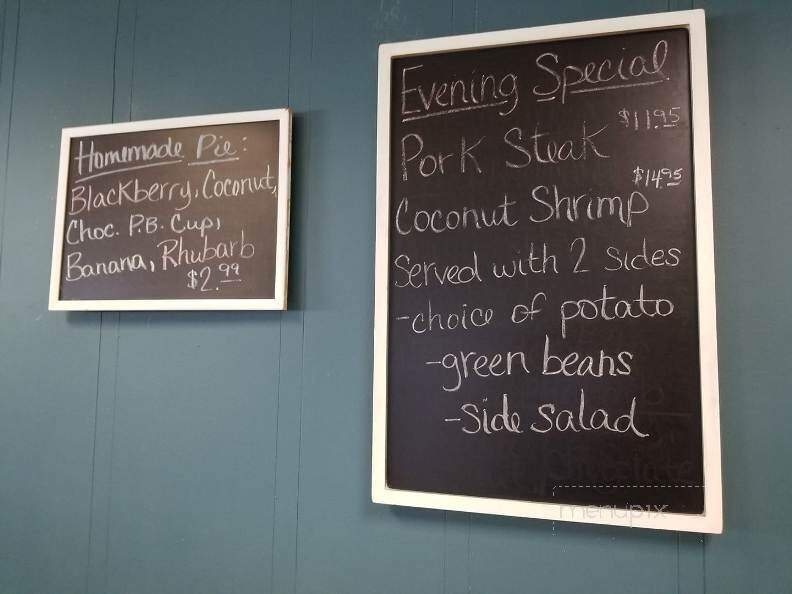 Homemade Pie:
Blackberry, Coconut,
Choc. P.B. Cup,
Banana, Rhubarb
$2.99
Evening Special
$11.95
Pork Steak
$14.95
Coconut Shrimp
Served with 2 sides
-choice of potato
-green beans
-side salad
menupix